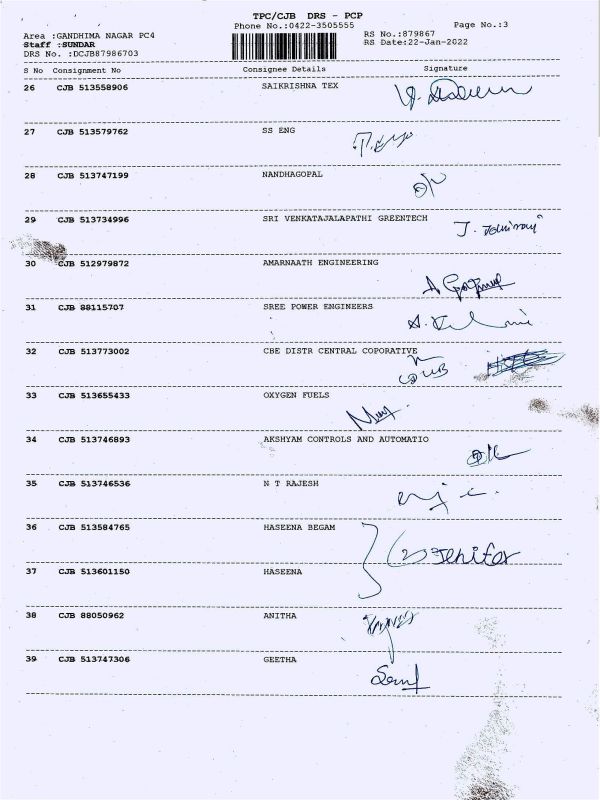 TPC/CJB DRS - PCP
Phone No.:0422-3505555 Page No.:3
Area :GANDHIMA NAGAR PC4 RS No.:879867
Staff :SUNDAR RS Date:22-Jan-2022
DRS No. :DCJB87986703
S No Consignment No Consignee Details Signature
26 CJB 513558906 SAIKRISHNA TEX
27 CJB 513579762 SS ENG
28 CJB 513747199 NANDHAGOPAL
29 CJB 513734996 SRI VENKATAJALAPATHI GREENTECH
30 CJB 512979872 AMARNAATH ENGINEERING
31 CJB 88115707 SREE POWER ENGINEERS
32 CJB 513773002 CBE DISTR CENTRAL COPORATIVE
33 CJB 513655433 OXYGEN FUELS
34 CJB 513746893 AKSHYAM CONTROLS AND AUTOMATIO
35 CJB 513746536 N T RAJESH
36 CJB 513584765 HASEENA BEGAM
(2) Jenifar
37 CJB 513601150 HASEENA
38 CJB 88050962 ANITHA
39 CJB 513747306 GEETHA